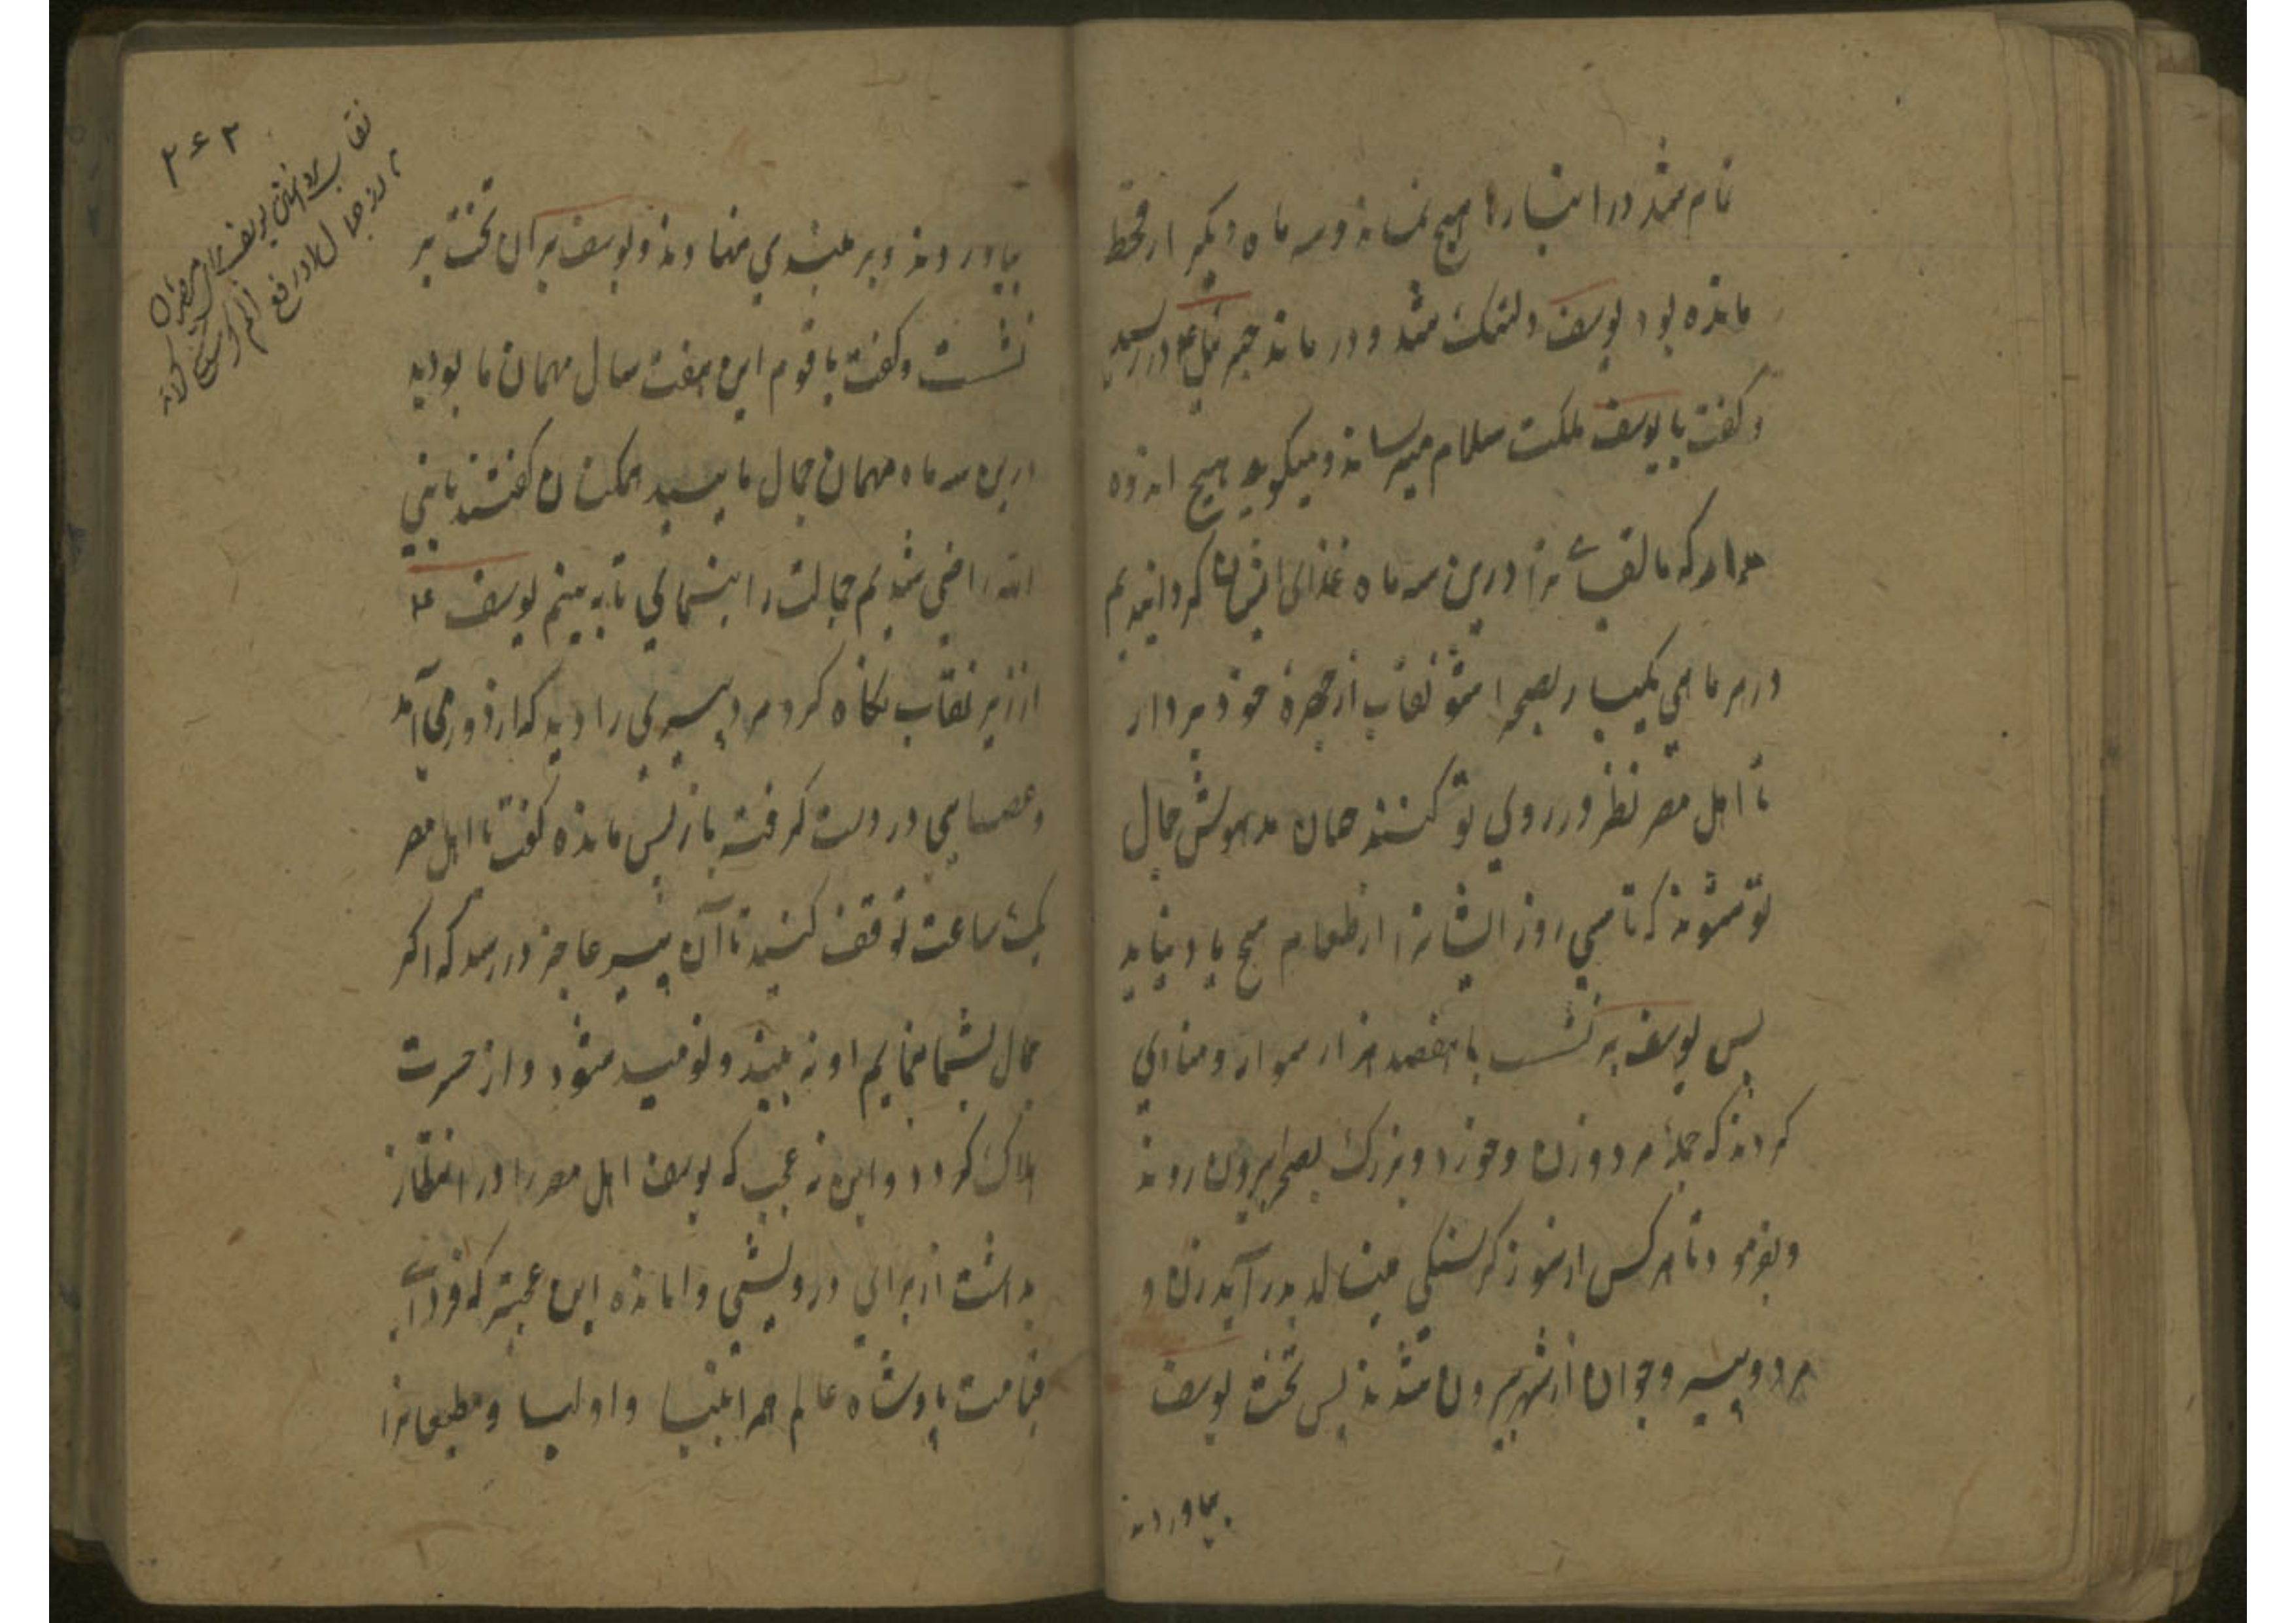 تمام شد در انبارها هیچ نماند و سه ماه دیگر از قحط
مانده بود یوسف دلتنگ شد و در ماند جبرئیل ع در رسید
و گفت یا یوسف ملکت سلام میرساند و میگوید هیچ اندوه
مدار که ما لقای ترا درین سه ماه غذای ایشان گردانیدیم
در هر ماهی یکبار بصحرا شو نقاب از چهره خود بردار
تا اهل مصر نظر در روی تو کنند همان مدهوش جمال
تو شوند که تا سی روز ایشانرا از طعام هیچ یاد نیاید
پس یوسف بر نشست با هفصد هزار سوار و منادی
کردند که جمله مرد و زن و خورد و بزرگ بصحرا بیرون روند
و بفرمود تا هر کس از سوز گرسنگی مینالد بدر آید زن و
مرد و پیر و جوان از شهر بیرون شدند پس تخت یوسف
بیاوردند
۲۶۲
نقاب برداشتن یوسف
بیاوردند و بر بلندی نهادند و یوسف بر آن تخت بر
نشست و گفت یا قوم این هفت سال مهمان ما بودید
درین سه ماه مهمان جمال ما باشید همکنان گفتند یا نبی
الله راضی شدیم جمالت را بنمای تا به بینم یوسف ع
از زیر نقاب نگاه کرد مرد پیری را دید که از دور می آمد
و عصایی در دست گرفته باز پس مانده گفت یا اهل مصر
یک ساعت توقف کنید تا آن پیر عاجز در رسد که اگر
جمال بشما نمایم او نه بیند و نومید شود و از حسرت
هلاک گردد و این نه عجب که یوسف اهل مصر را در انتظار
بداشت از برای درویشی وامانده این عجبتر که فردای
قیامت پادشاه عالم جمله انبیا و اولیا و مطیعانرا